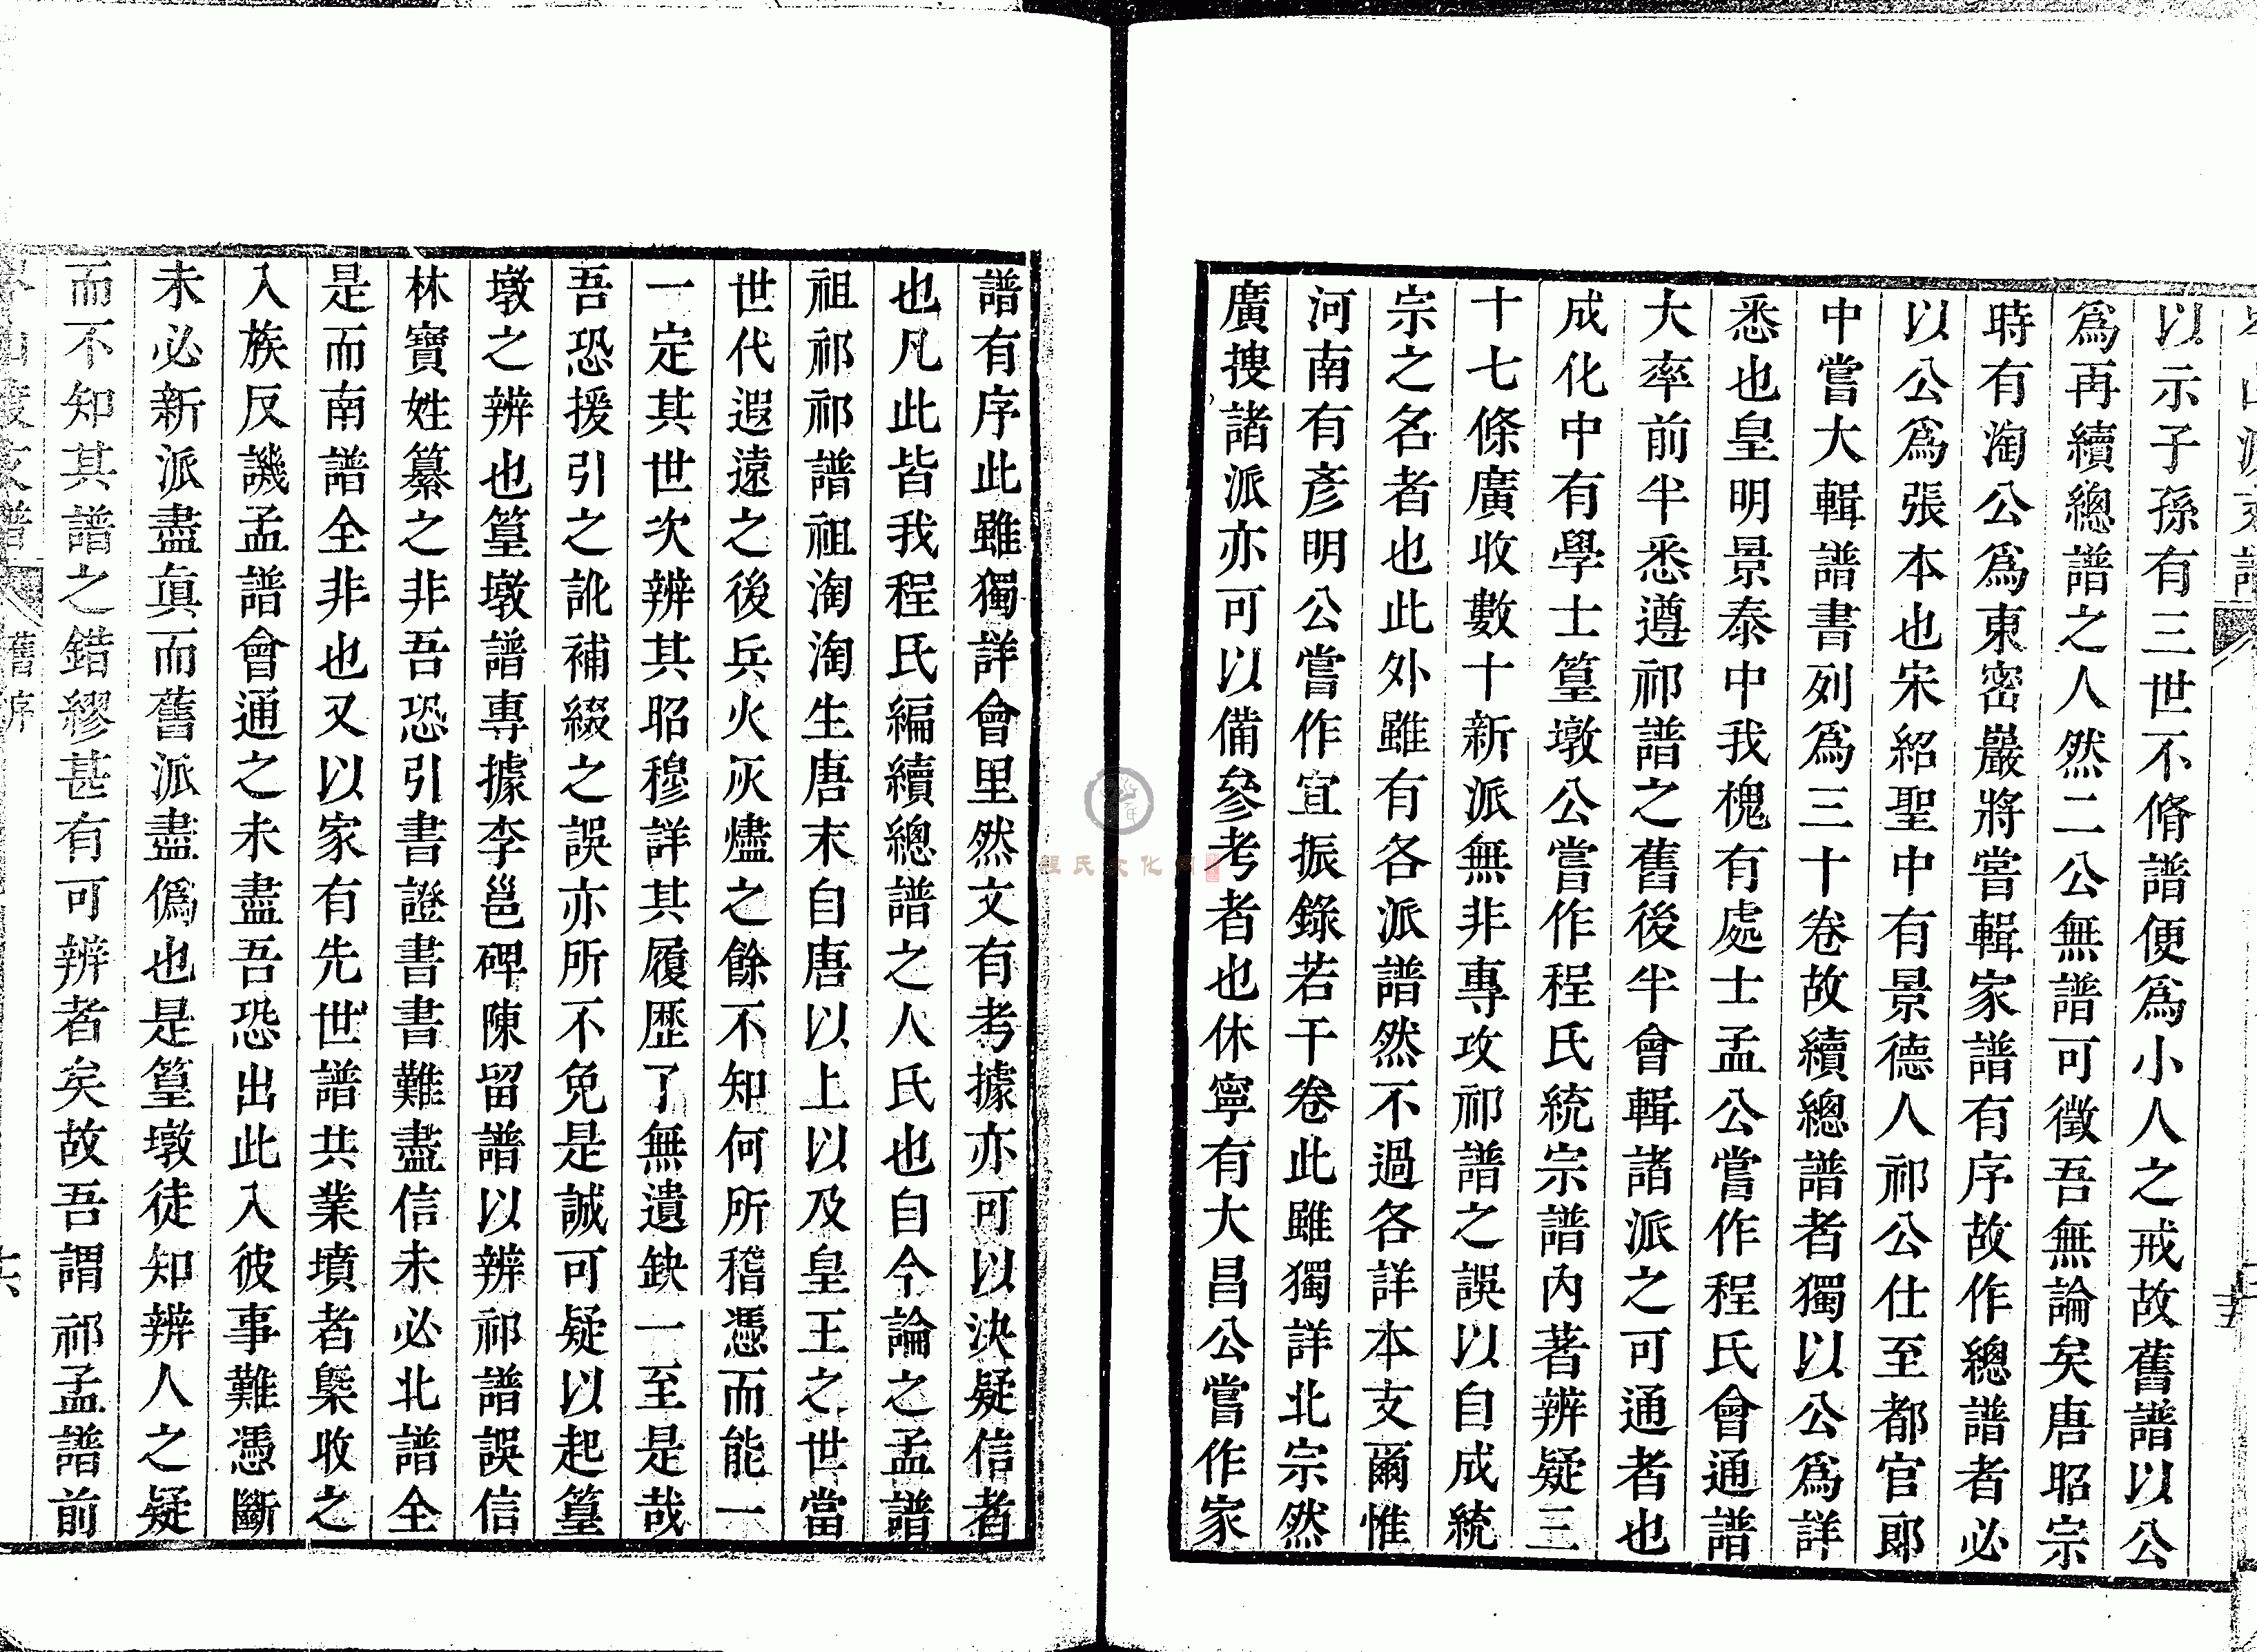 以示子孫有三世不脩譜便爲小人之戒故舊譜以公
爲再續總譜之人然二公無譜可徵吾無論矣唐昭宗
時有淘公爲東密巖將嘗輯家譜有序故作總譜者必
以公爲張本也宋紹聖中有景德人祁公仕至都官郎
中嘗大輯譜書列爲三十卷故續總譜者獨以公爲詳
悉也皇明景泰中我槐有處士孟公嘗作程氏會通譜
大率前半悉遵祁譜之舊後半會輯諸派之可通者也
成化中有學士篁墩公嘗作程氏統宗譜內著辨疑三
十七條廣收數十新派無非專攻祁譜之誤以自成統
宗之名者也此外雖有各派譜然不過各詳本支爾惟
河南有彥明公嘗作宜振錄若干卷此雖獨詳北宗然
廣搜諸派亦可以備參考者也休寧有大昌公嘗作家
譜有序此雖獨詳會里然文有考據亦可以決疑信者
也凡此皆我程氏編續總譜之人氏也自今論之孟譜
祖祁祁譜祖淘淘生唐末自唐以上以及皇王之世當
世代遐遠之後兵火灰燼之餘不知何所稽憑而能一
一定其世次辨其昭穆詳其履歷了無遺缺一至是哉
吾恐援引之訛補綴之誤亦所不免是誠可疑以起篁
墩之辨也篁墩譜專據李邕碑陳留譜以辨祁譜誤信
林寶姓纂之非吾恐引書證書書難盡信未必北譜全
是而南譜全非也又以家有先世譜共業墳者槩收之
入族反譏孟譜會通之未盡吾恐出此入彼事難憑斷
未必新派盡眞而舊派盡僞也是篁墩徒知辨人之疑
而不知其譜之錯繆甚有可辨者矣故吾謂祁孟譜前
舊序
程氏文化網